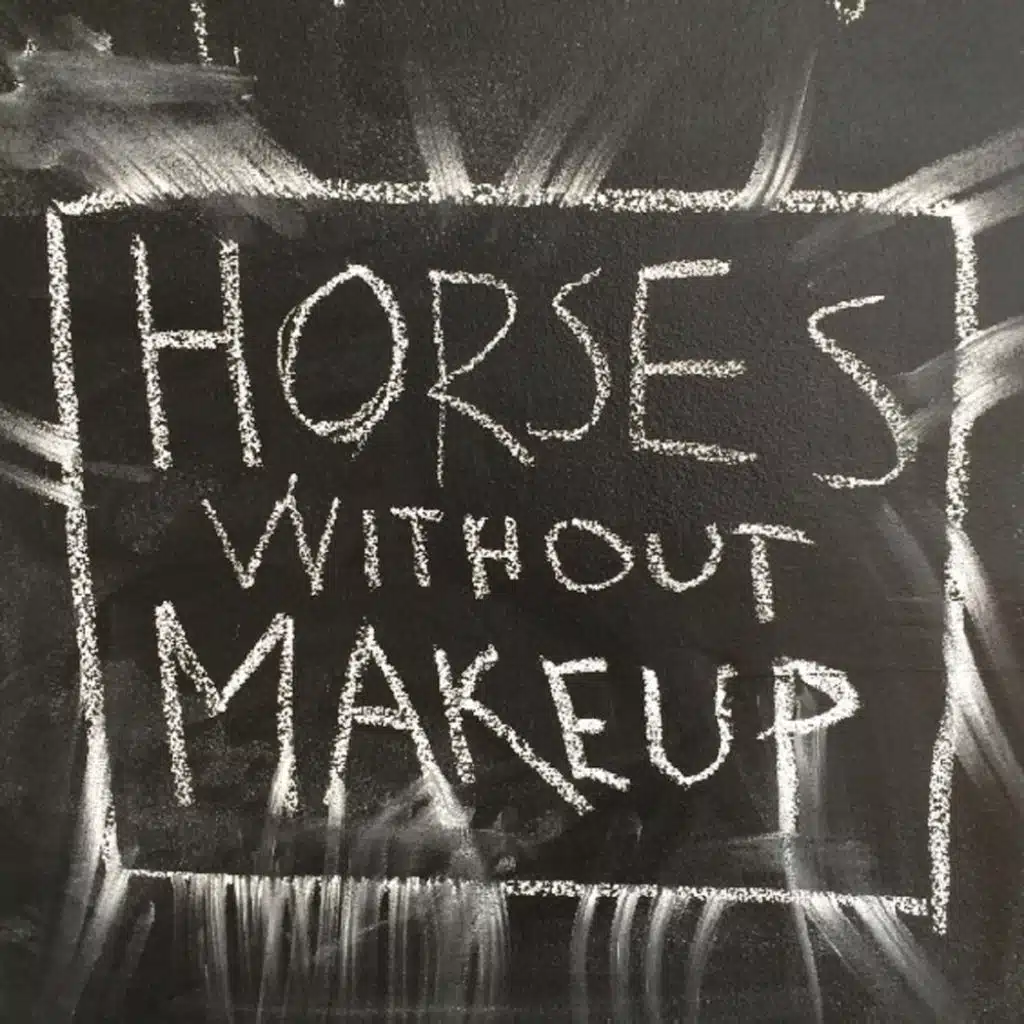 HORSES
WITHOUT
MAKEUP